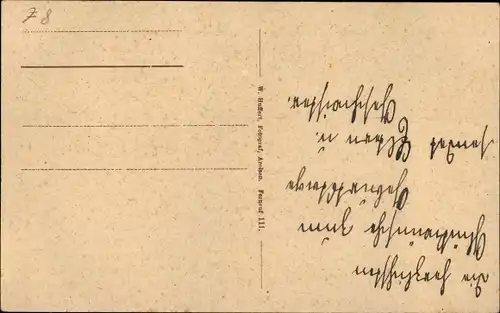 Z 8
W. Hoffert, Fotograf, Arolsen. Fernruf 111.
Die herzlichsten
Glückwünsche zum
Geburtstage
sendet
Geschwister.